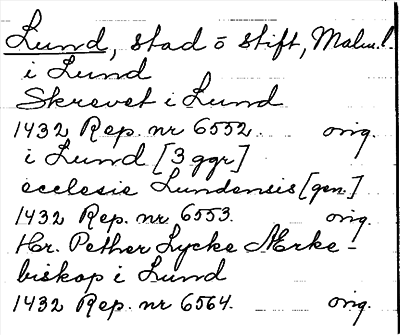 Lund, stad o stift, Malm.l.
i Lund
Skrevet i Lund
1432 Rep. nr 6552. orig.
i Lund [3 ggr]
ecclesie Lundensis [gen.]
1432 Rep. nr 6553. orig.
Hr. Pether Lycke Ærke-
biskop i Lund
1432 Rep. nr 6564. orig.